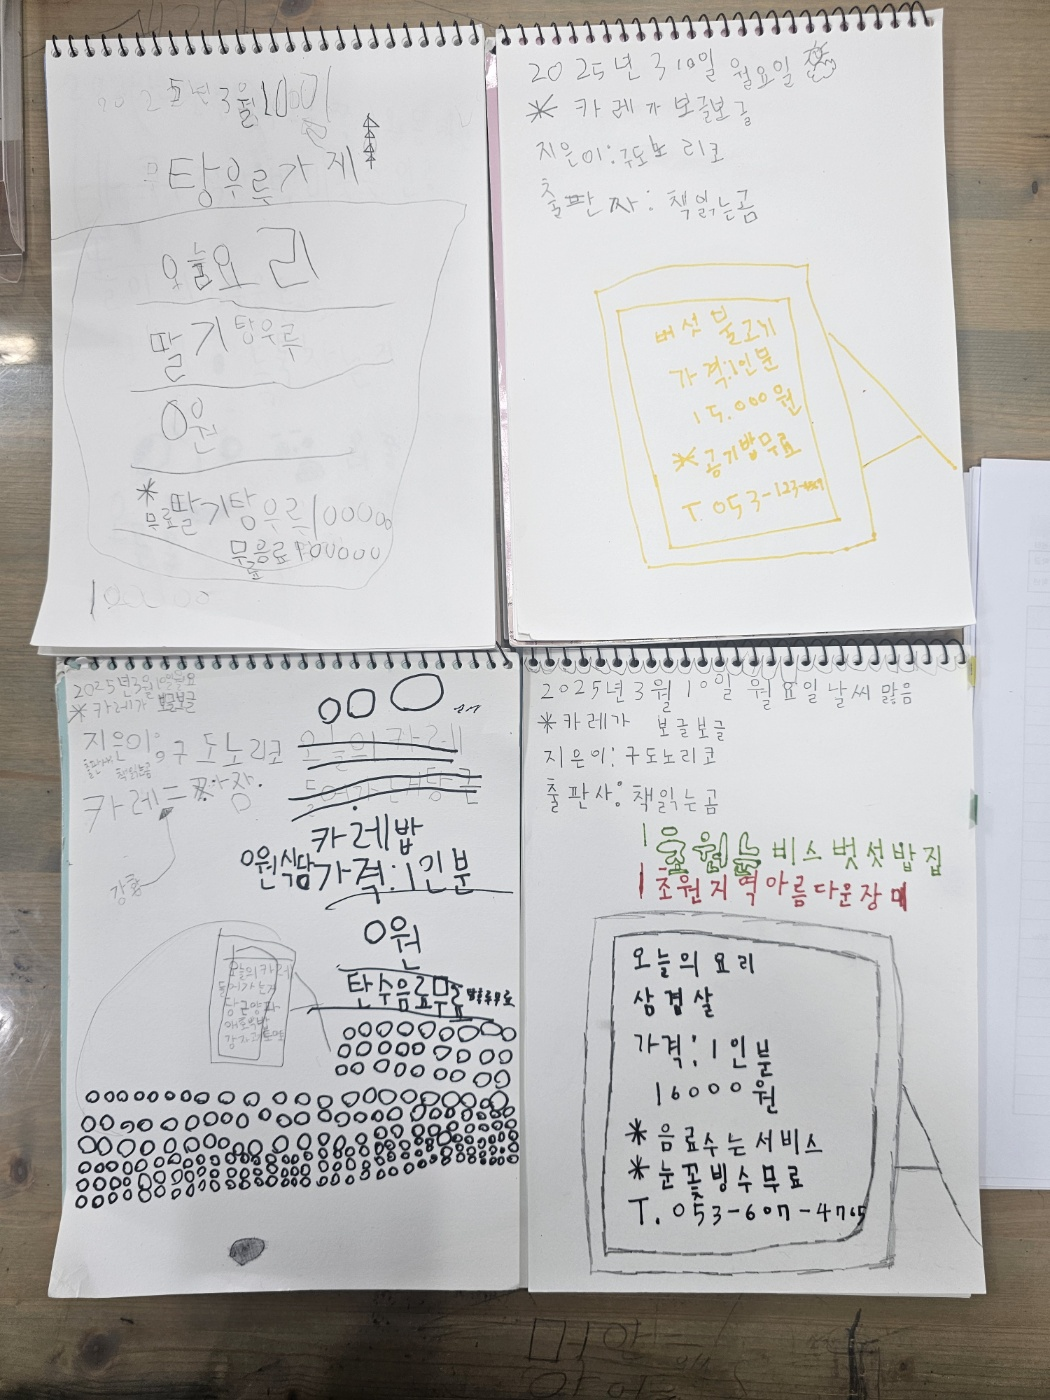 2025년 3월10일
탕우루가 게
오늘요리
딸기탕우루
0원
*
무료딸기탕우르100000
무음료100000
2025년 310일 월요일
* 카레가 보글보글
지은이:구도노 리코
출판짜: 책읽는곰
버섯불고기
가격:1인분
15.000원
*공기밥무료
T. 053-123-
2025년3월10일월요
* 카레가 보글보글
지은이:구도노리코 오늘의 카레
출판사 책읽는곰
카레=짜장
카레밥
0원식당가격:1인분
강황
0원
탄수음료무료
오늘의카레
당근양파
2025년3월 10일 월요일 날씨 맑음
*카레가 보글보글
지은이: 구도노리코
출판사: 책읽는곰
초원늘비스벗섯밥집
초원지역아름다운장
오늘의 요리
삼겹살
가격: 1인분
16000원
* 음료수는서비스
* 눈꽃빙수무료
T. 053-607-4765